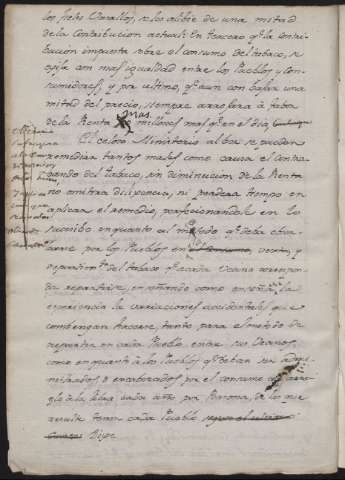 los fieles Vasallos, se los alibie de una mitad
de la Contribucion actual. En tercero qe. la contri-
bucion impuesta sobre el consumo del tabaco, se
exija con mas igualdad entre los Pueblos y Con-
sumidores; y por ultimo, qe. aun con bajar una
mitad del precio, siempre
de la Renta mas millones mas qe. en el dia,
El celoso Ministerio al ber se pueden
remediar tantos males como causa el Contra-
bando del tabaco, sin diminucion de la Renta
no omitira diligencia, ni perdera tiempo en
aplicar el remedio, perfecionandole en lo
sucesibo en quanto al metodo qe. deba obser-
barse por los Pueblos en el consumo, y
repartimto. del tabaco qe. a cada Vecino correspon-
da repartirse, enseñando como enseña la
experiencia la variaciones accidentales que
combengan hacerse, tanto para el metodo de
repartir en cada Pueblo, entre sus Vecinos,
como en quanto a los Pueblos qe. deban ser admi-
nistrados o encabezados por el consumo
gle a la baja cada año por Persona, de lo que
resulte tomar cada Pueblo segun el ultimo